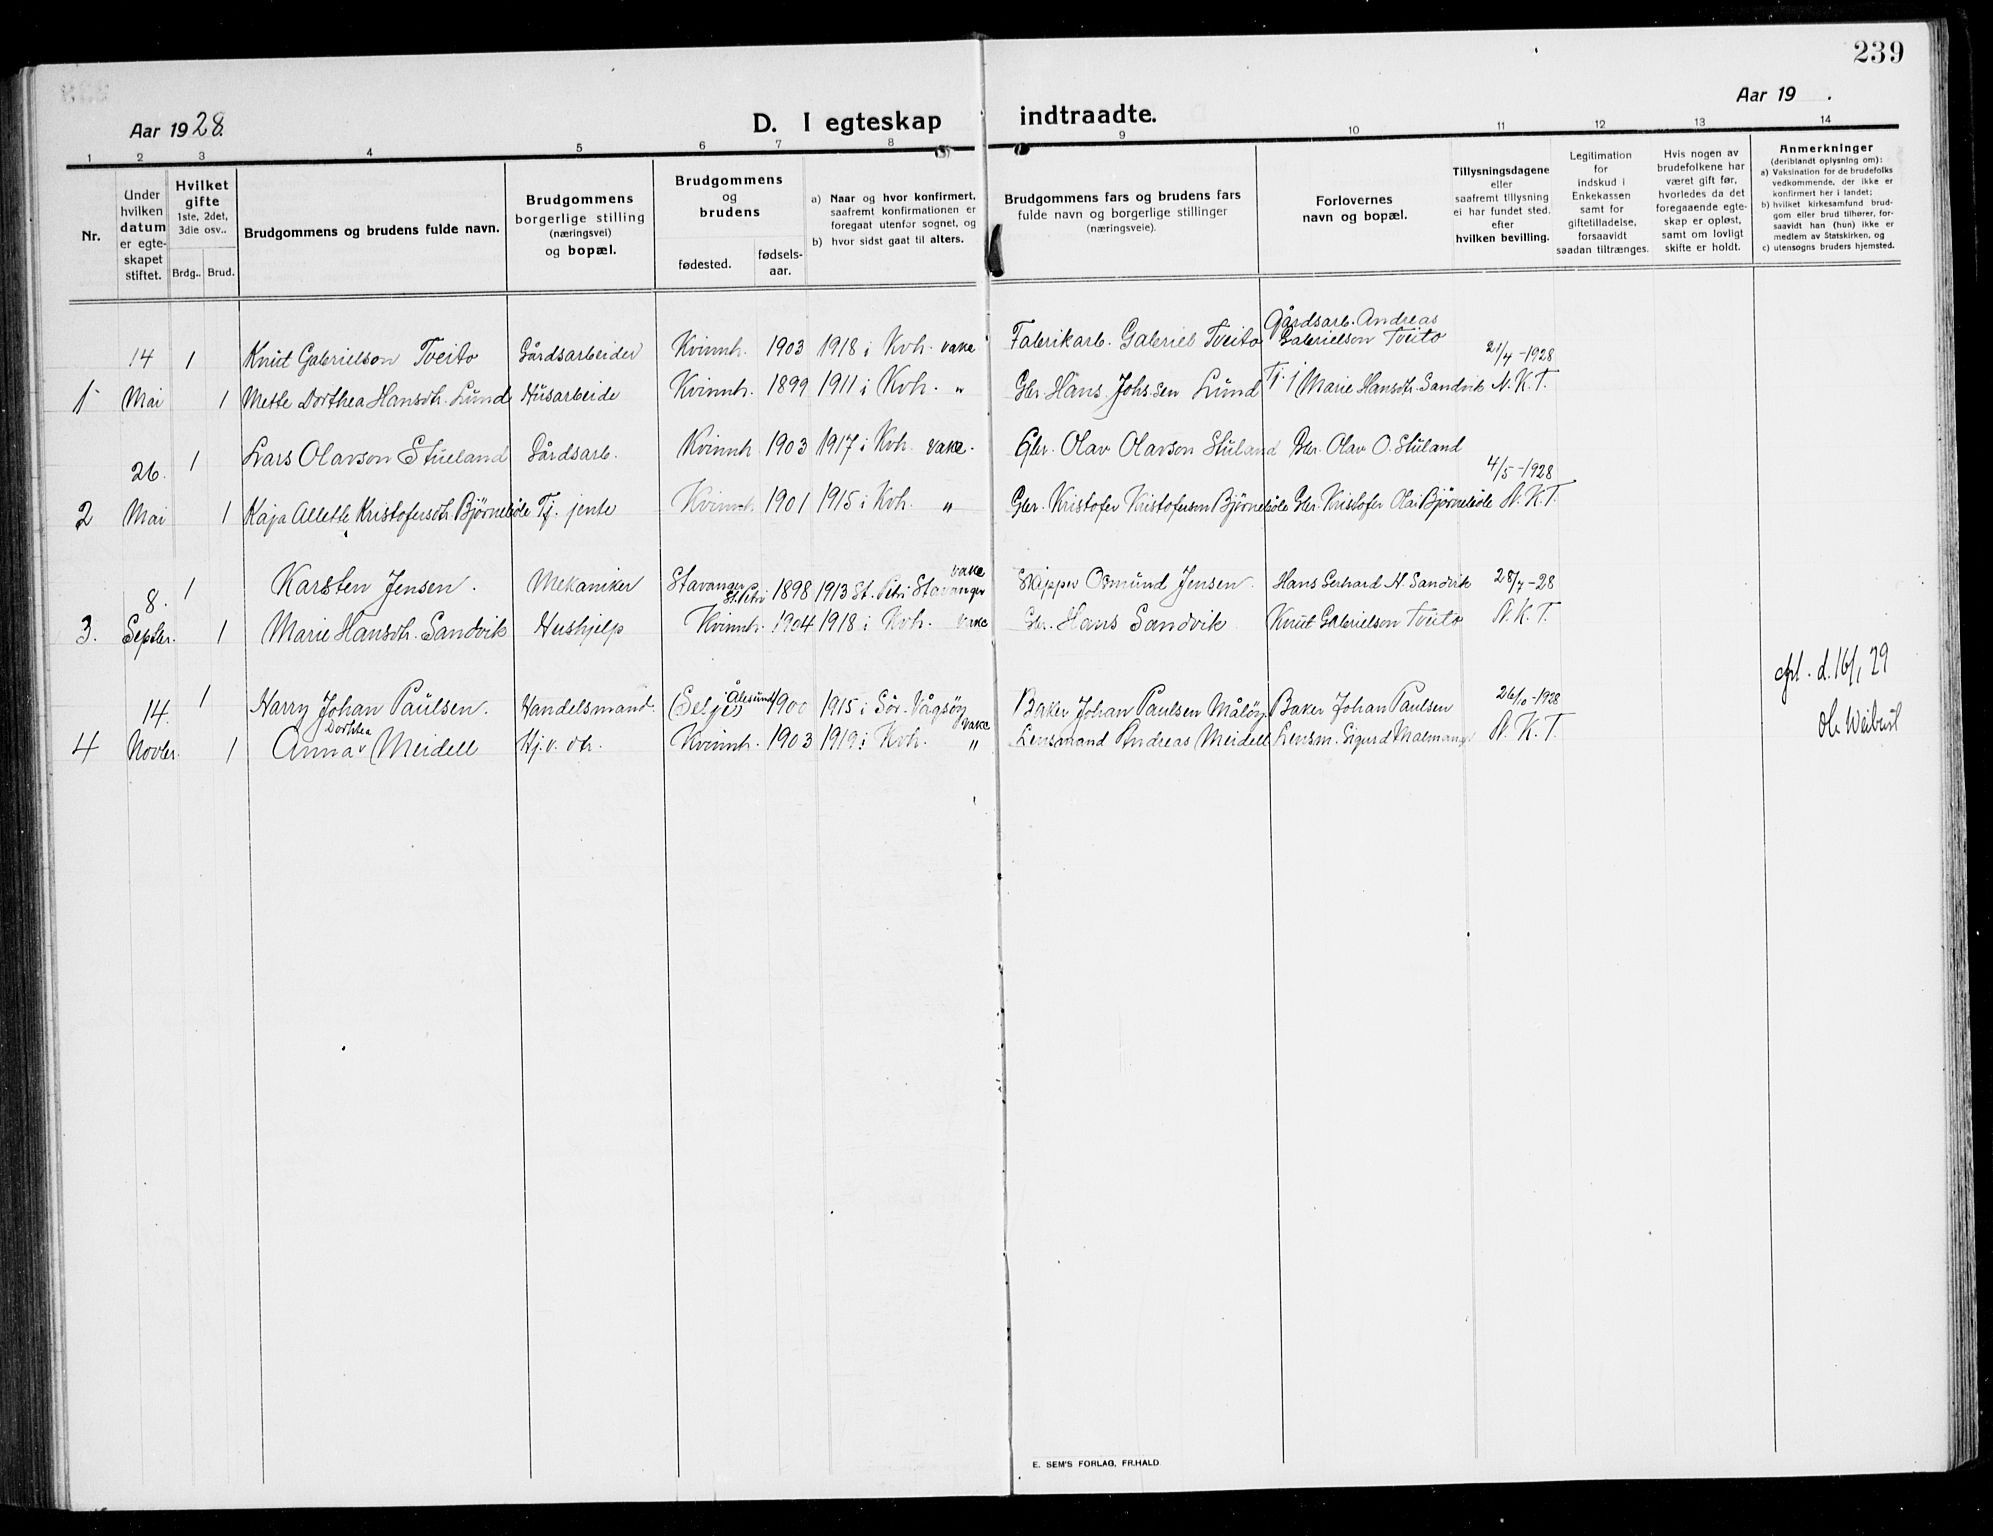 239
Aar 1928.
D. I egteskap indtraadte.
Aar 19 .
1 2 3 4 5 6 7 8 9 10 11 12 13 14
Nr.
Under hvilken datum er egteskapet stiftet.
Hvilket gifte 1ste, 2det, 3die osv..
Brdg.. Brud.
Brudgommens og brudens fulde navn.
Brudgommens borgerlige stilling (næringsvei) og bopæl.
Brudgommens og brudens
fødested. fødsels-aar.
a) Naar og hvor konfirmert, saafremt konfirmationen er foregaat utenfor sognet, og
b) hvor sidst gaat til alters.
Brudgommens fars og brudens fars fulde navn og borgerlige stillinger (næringsveie).
Forlovernes navn og bopæl.
Tillysningsdagene eller saafremt tillysning ei har fundet sted. efter hvilken bevilling.
Legitimation for indskud i Enkekassen samt for giftetilladelse, forsaavidt saadan tiltrænges.
Hvis nogen av brudefolkene har været gift før, hvorledes da det foregaaende egteskap er opløst, samt om lovligt skifte er holdt.
Anmerkninger (deriblandt oplysning om):
a) Vaksination for de brudefolks vedkommende, der ikke er konfirmert her i landet;
b) hvilket kirkesamfund brudgom eller brud tilhører, forsaavidt han (hun) ikke er medlem av Statskirken, og
c) utensogns bruders hjemsted.
14 1 Knut Gabrielson Tveito Gårdsarbeider Kvinnh. 1903 1918 i Kvh. vake Fabrikarb. Gabriel Tveito Gårdsarb. Andreas Gabrielson Tveito 21/4-1928
1 Mai 1 Mette Dorthea Hansdtr. Lund Husarbeide Kvinnh. 1899 1911 i Kvh. " Gbr. Hans Johs.sen Lund Tj. j Marie Hansdtr. Sandvik N.K.T.
26. 1 Lars Olavson Stueland Gårdsarb. Kvinnh. 1903 1917 i Kvh. vake. Gbr. Olav Olavson Stuland Gbr. Olav O. Stuland 4/5-1928
2 Mai 1 Kaja Alette Kristofersdtr. Bjørnebøle Tj. jente Kvinnh. 1901 1915 i Kvh. " Gbr. Kristofer Kristoferson Bjørnebøle Gbr. Kristofer Olai Bjørnebøle N.K.T.
8. 1 Karsten Jensen. Mekaniker Stavanger St. Petri 1898 1913 St. Petri Stavanger vake Skipper Osmund Jensen. Hans Gerhard H. Sandvik 28/7-28
3. Septbr. 1 Marie Hansdtr. Sandvik Hushjelp Kvinnh. 1904 1918 i Kvh. vake Gbr. Hans Sandvik Knut Gabrielson Tveito N.K.T.
14. 1 Harry Johan Paulsen. Handelsmand. (Selje) Ålesund 1900 1915 i Sør-Vågsøy vake Baker Johan Paulsen Måløy Baker Johan Paulsen 26/10-1928 d. 16/1 29
4 Novbr. 1 Anna Dorthea Meidell Hj.v. dtr. Kvinnh. 1903 1919 i Kvh. " Lensmand Andreas Meidell Lensm. Sigurd Malmanger N.K.T.
E. SEM'S FORLAG, FR.HALD.